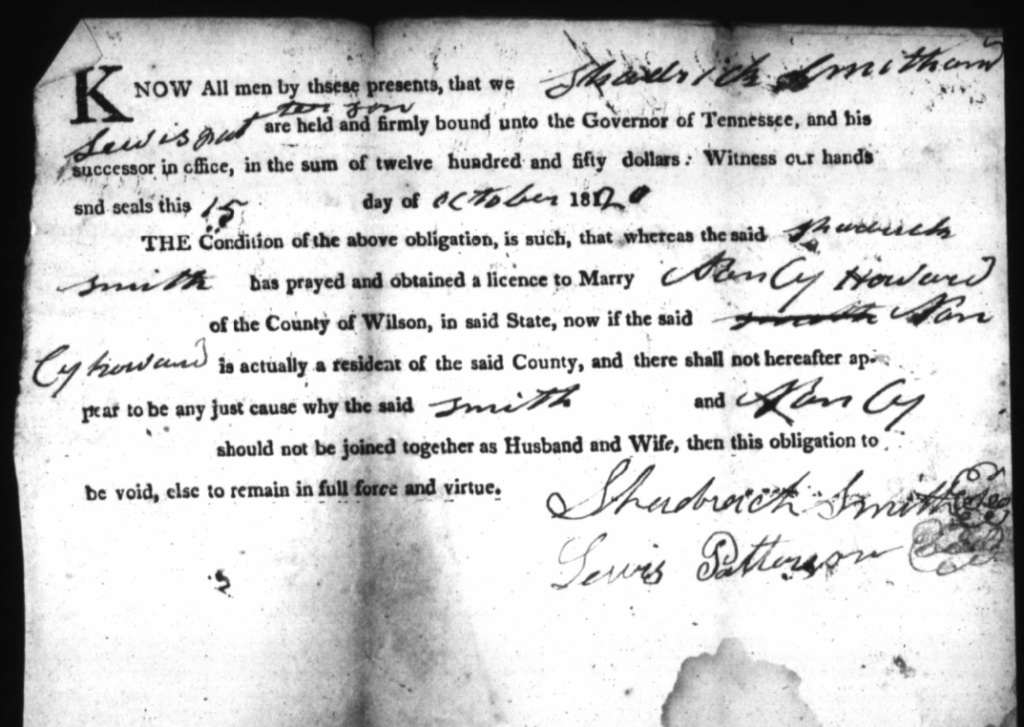 KNOW All men by thsese presents, that we Shadrich Smith and
Lewis patterson are held and firmly bound unto the Governor of Tennessee, and his
successor in office, in the sum of twelve hundred and fifty dollars: Witness our hands
snd seals this 15 day of october 1820
THE Condition of the above obligation, is such, that whereas the said Shadrick
smith has prayed and obtained a licence to Marry Nancy Howard
of the County of Wilson, in said State, now if the said smith Nan
Cy howard is actually a resident of the said County, and there shall not hereafter ap-
pear to be any just cause why the said smith and Nancy
should not be joined together as Husband and Wife, then this obligation to
be void, else to remain in full force and virtue.
Shadrach Smith
Lewis Patterson